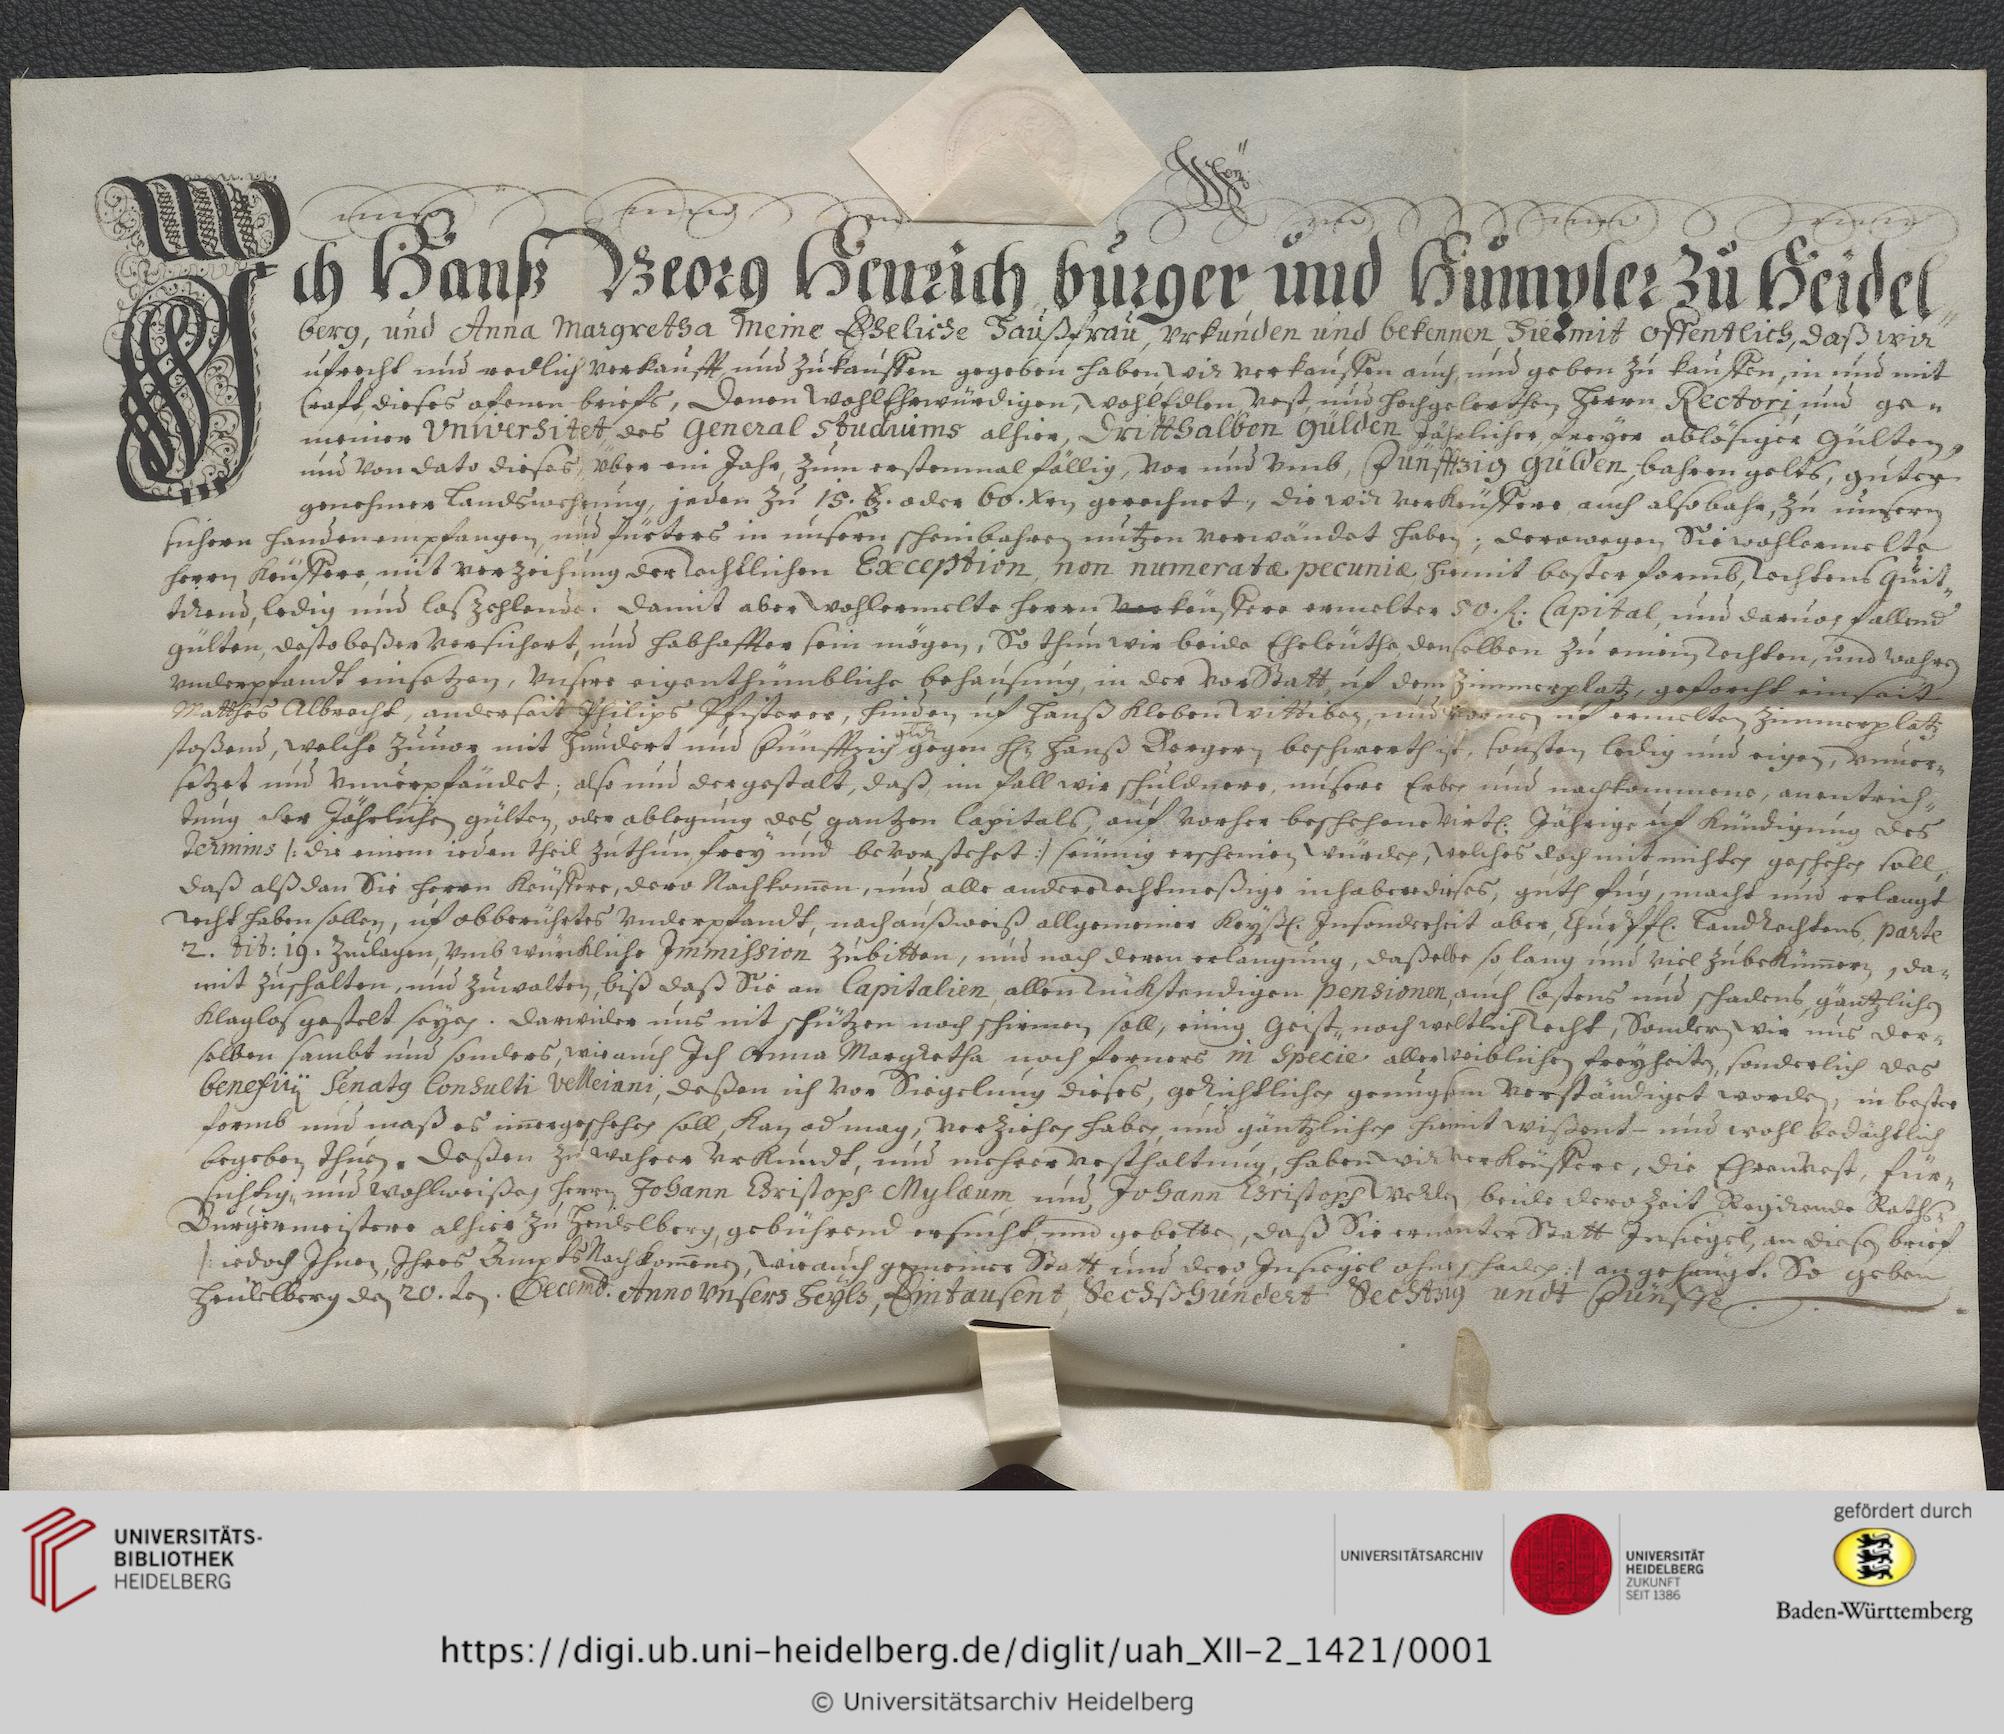 Ich Hanß Georg Henrich burger und Hümpler zu Heidel„
berg, und Anna Margretha Meine Eheliche Haußfrau, Vrkunden und bekennen hiermit offentlich, daß wir
ufrecht und redlich verkaufft und zukauffen gegeben haben wir verkauffen auch, und geben zu kauffen, in und mit
Crafft dieses ofenen briefs, Denen WohlEhrwürdigen, wohlEdlen, Vest, und hochgelerthen Herrn Rectori und ge„
meiner Vniversitet, des General Studiums alhier, Dritthalben Gülden Jährlicher, freyer ablösiger Gülten,
und von dato dieses, über ein Jahr, zum erstenmal fällig, vor und vmb, Fünfftzig Gülden, bahren gelts, guter
genehmer Landswehrung, jeden zu 15. bz. oder 60. Xrn gerechnet, die wir verkeuffere auch alsobahr, zu unsern
sichern handen empfangen, und fürters in unsern scheinbahren nutzen verwändet haben; derowegen Sie wohlermelte
herrn keuffere, mit verzeihung der rechtlichen Exception, non numeratæ pecuniæ, hiemit bester formb, rechtens quit„
tirend, ledig und loszehlende. Damit aber wohlermelte herrn keuffere ermelter 50. fl. Capital, und darvon fallend
gülten, desto beßer versichert, und habhaffter sein mögen, So thun wir beide Eheleuthe, denselben zu einem rechten, und wahren
vnderpfandt einsetzen, Vnsere eigenthümbliche behausung, in der VorStatt, uf dem Zimmerplatz, geforcht einseit
Matthes Albrecht, anderseit Philips Pfisterer, hinden uf Hanß Kleben Wittiben, und vornen uf ermelten Zimmerplatz
stoßend, welche zuuor mit Hundert und Fünfftzig gegen Hr. Hanß Bergern beschwerth ist, sonsten ledig und eigen, vnuer„
setzet und vnuerpfändet; also und dergestalt, daß, im fall wir schuldnere, unsere Erben und nachkommene, an entrich„
tung der Jährlichen gülten, oder ablegung des gantzen Capitals, auf vorher beschehene Jährige uf kündigung des
Termins /: die einem ieden theil zuthun frey und bevorstehet :/ seumig erscheinen würden, welches doch mit nichten geschehen soll,
daß alßdan Sie herrn keuffere, dero Nachkomen, und alle andere rechtmeßige inhabere dieses, guth fug, macht und erlangt
recht haben sollen, uf obberührtes Vnderpfandt, nach außweiß allgemeiner Keyßl. Insonderheit aber, ChurPfl. LandRechtens, parte
2. tit: 19. zuclagen, vmb würckliche Immission zubitten, und nach deren erlangung, daßelbe so lang und viel zubekümmern, da„
mit zuschalten, und zuwalten, biß daß Sie an Capitalien, allen rückstendigen pensionen, auch Costens und schadens, gäntzlichen
klaglos gestelt seyen. Darwider uns nit schützen noch schirmen soll, einig Geist„ noch weltlich recht, Sondern wir uns der„
selben sambt und sonders, wie auch Ich Anna Margretha noch ferners in specie aller weiblichen freyheiten, sonderlich des
beneficij Senatus Consulti Velleiani, deßen ich vor Siegelung dieses, gerichtlichen genugsam verständiget worden, in bester
formb und maß es imer geschehen soll, kan od mag, verziehen haben, und gäntzlichen hiemit wißent- und wohl bedächtlich
begeben thuen. Deßen zu wahrer Vrkundt, und mehrer vesthaltung, haben wir verkeuffere, die Ehrenvest, Für„
sichtig„ und Wohlweißen herrn Johann Christoph Mylæum, und Johann Christoph beide derozeit Regirende Raths
Burgermeistere alhier zu Heidelberg, gebührend ersucht und gebetten, daß Sie ernanter Statt Insiegel, an diesen brief
/: iedoch Ihnen, Ihres Ampts Nachkomenen, wie auch gemeiner Statt und dero Insiegel ohne schaden :/ angehängt. So geben
Heidelberg den 20. ten. Decemb. Anno Vnsers Heyls, Eintausent, Sechßhundert Sechtzig undt Fünffe.
UNIVERSITÄTS-
BIBLIOTHEK
HEIDELBERG
UNIVERSITÄTSARCHIV
UNIVERSITÄT
HEIDELBERG
ZUKUNFT
SEIT 1386
gefördert durch
Baden-Württemberg
https://digi.ub.uni-heidelberg.de/diglit/uah_XII-2_1421/0001
© Universitätsarchiv Heidelberg